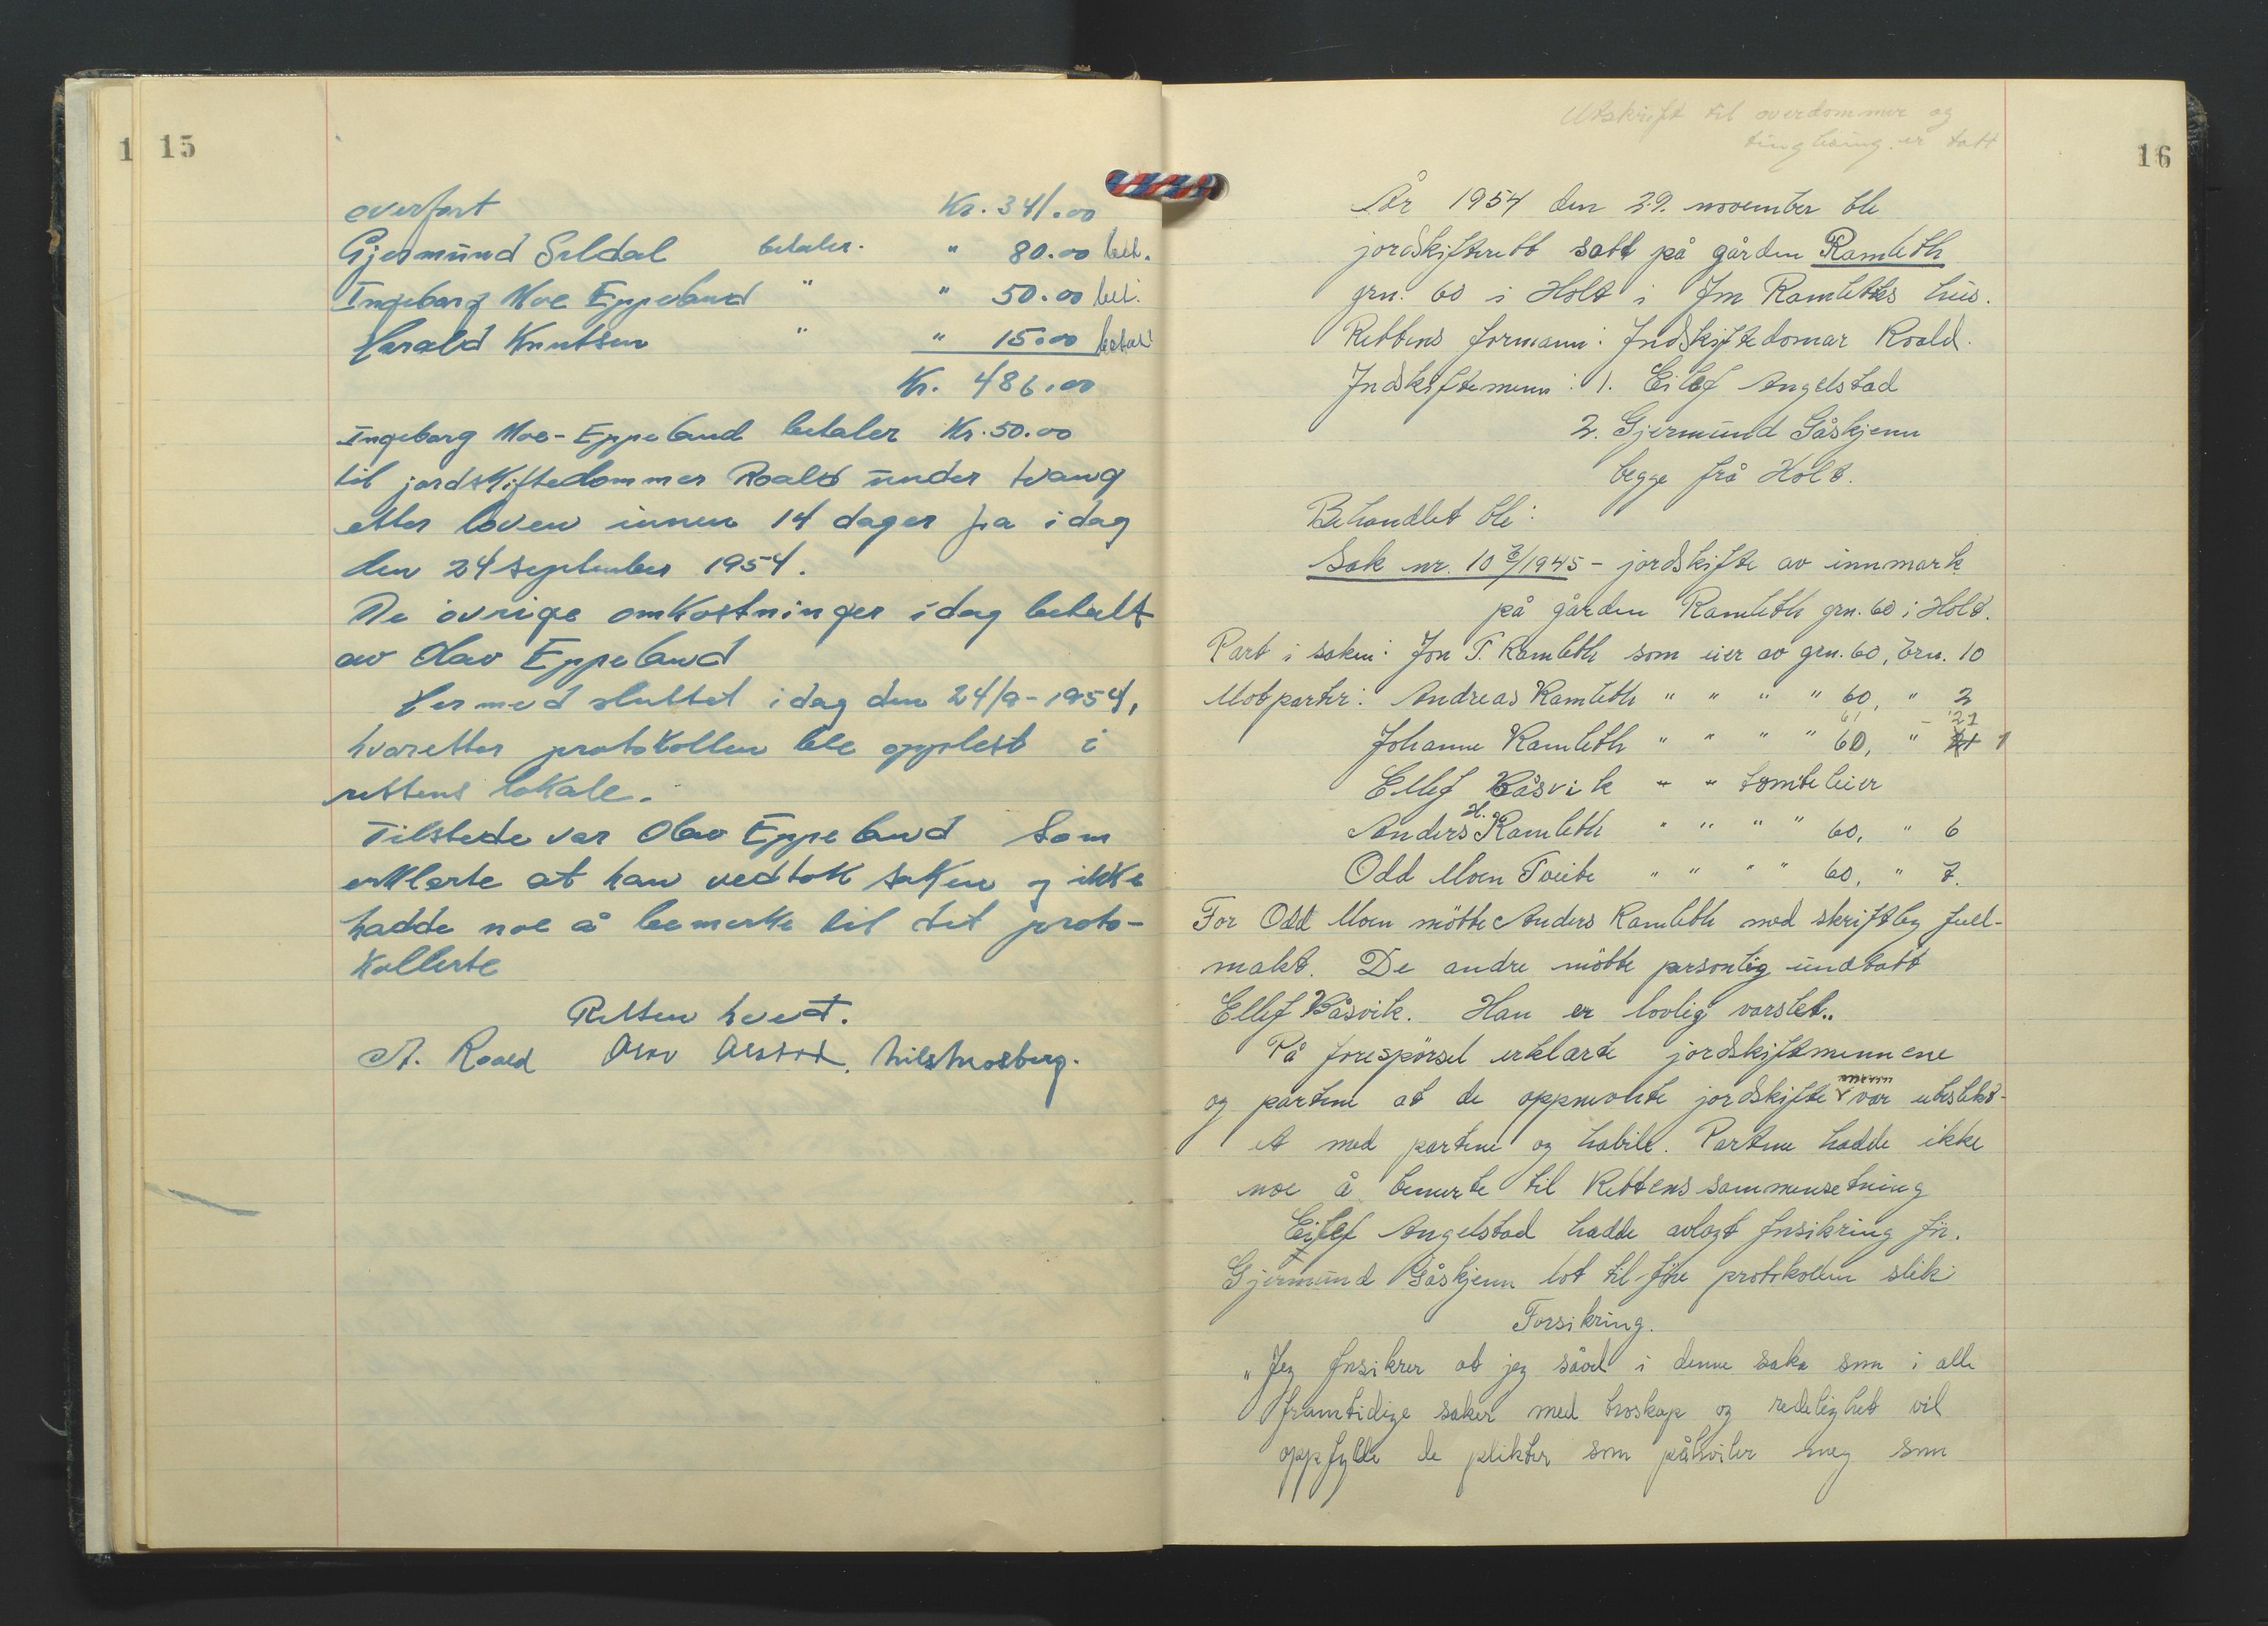 15
overfört Kr. 341.00
Gjermund Seldal betaler. " 80.00 bet.
Ingeborg Moe Eppeland " " 50.00 bet.
Harald Knutsen " " 15.00 betal
Kr. 486.00
Ingeborg Moe-Eppeland betaler Kr. 50.00
til jordskiftedommer Roald under tvang
etter loven innen 14 dager fra idag
den 24 september 1954.
De övrige omkostninger idag betalt
av Olav Eppeland
Hermed sluttet idag den 24/9-1954,
hvoretter protokollen ble opplest i
rettens lokale.
Tilstede var Olav Eppeland som
erklerte at han vedtok saken og ikke
hadde noe å bemerke til det proto-
kollerte
Retten hevet.
A. Roald Nils Mosberg.
16
Utskrift til overdommer og
tinglysing er tatt
År 1954 den 29. november ble
jordskifterett satt på gården Ramleth
grn. 60 i Holt i Jon Ramleths hus.
Rettens formann: Jordskiftedomar Roald.
Jordskiftemenn: 1. Eilef Angelstad
2. Gjermund Gåskjenn
begge frå Holt.
Behandlet ble:
Sak nr. 10 /1945 - jordskifte av innmark
på gården Ramleth grn. 60 i Holt.
Part i saken: Jon T. Ramleth som eier av grn. 60, brn. 10
Motparter: Andreas Ramleth " " " " 60, " 2
61 - 21
Johanne Ramleth " " " " 60, " 1
Ellef Båsvik " " tomteleier
Anders H. Ramleth " " " " 60, " 6
Odd Moen Tveite " " " " 60, " 7.
For Odd Moen mötte Anders Ramleth med skriftleg full-
makt. De andre mötte personlig undtatt
Ellef Båsvik. Han er lovlig varslet.
På forespörsel erklærte jordskiftemennene
og partene at de oppnevnte jordskiftemenn var ubeslekt-
et med partene og habile. Partene hadde ikke
noe å bemerke til Rettens sammensetning
Eilef Angelstad hadde avlagt forsikring för.
Gjermund Gåskjenn lot til före protokollen slik
Forsikring.
„Jeg forsikrer at jeg såvel i denne sake som i alle
framtidige saker med troskap og redelighet vil
oppfylle de plikter som påhviler meg som